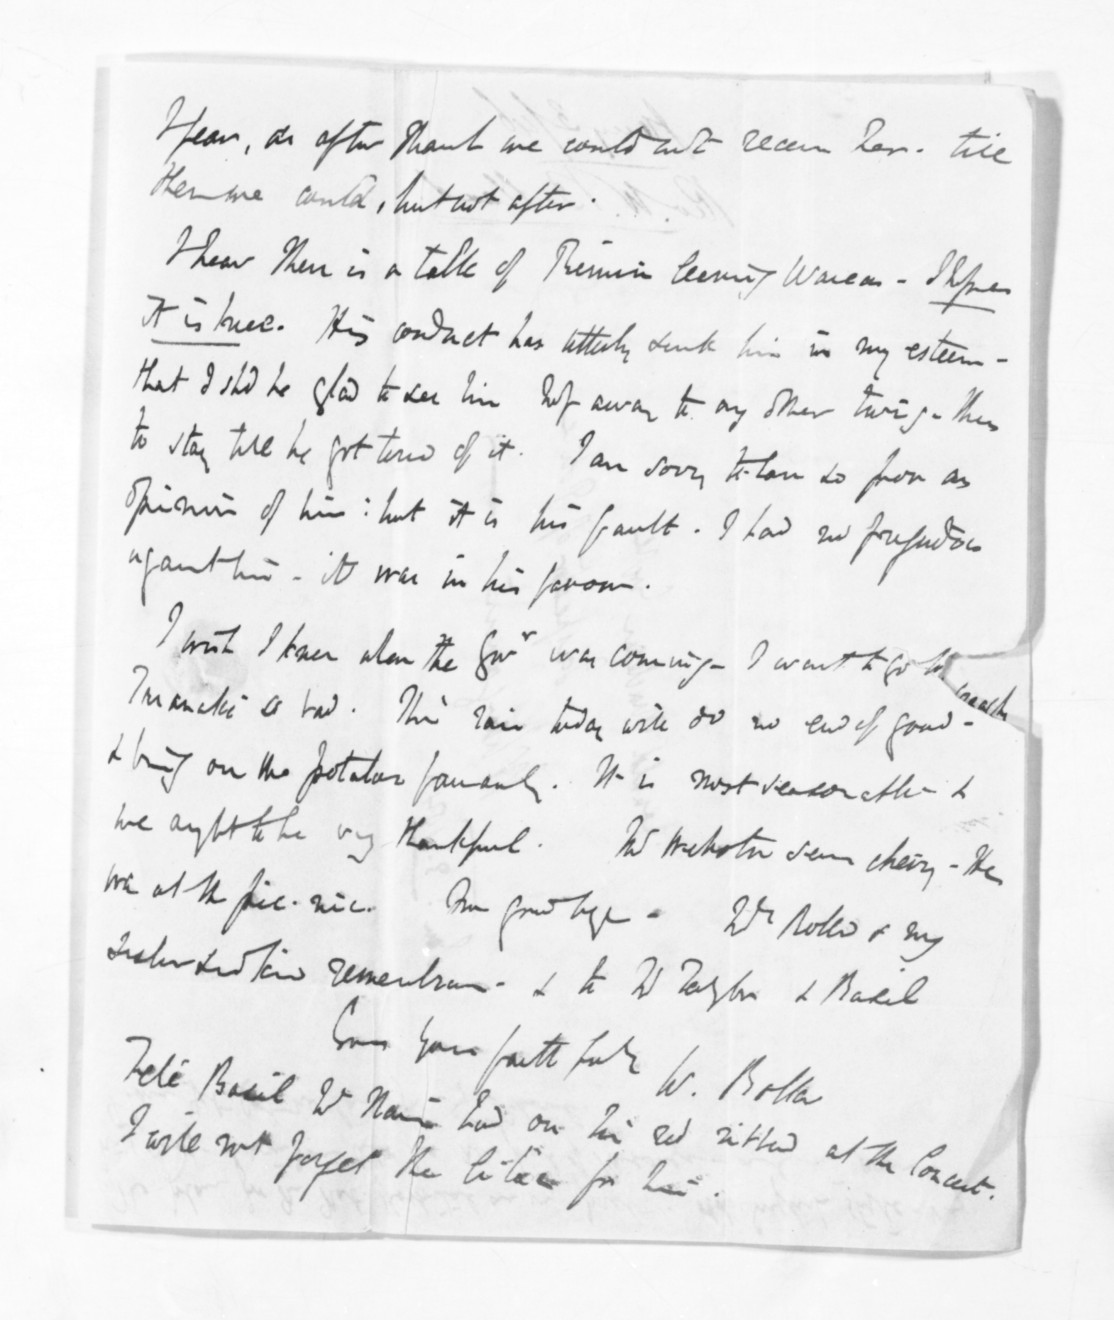 I fear, as after that we could not receive her. till
then we could, but not after.
I hear there is a talk of leaving - I hope
it is true. His conduct has utterly sunk him in my esteem -
that I shd be glad to see him away to any other - then
to stay till he got tired of it. I am sorry to have so poor an
opinion of him: but it is his fault. I had no prejudices
against him - it was in his favour.
I wish I knew when the Govr was coming - I want to go to
so bad. This rain today will do no end of good -
& bring on the potatoes famously. It is most seasonable &
we ought to be very thankful. Mr Webster seems cheery - He
was at the pic-nic. Now goodbye - Mrs Bolland & my
sister send kind remembrance - & to Mr Taylor & Basil
Ever yours faithfully W. Bolland
Tell Basil Mr had on his red at the Concert.
I will not forget the for him.